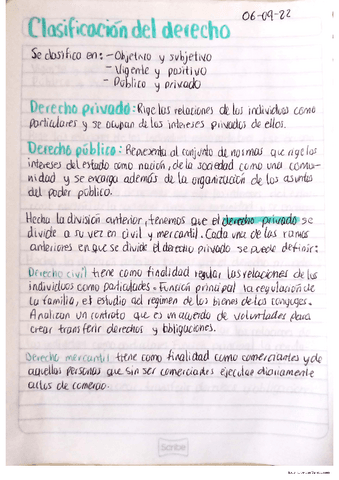 06-09-22
Clasificación del derecho
Se clasifica en: - Objetivo y subjetivo
- Vigente y positivo
- Público y privado
Derecho privado: Rige las relaciones de los individuos como
particulares y se ocupan de los intereses privados de ellos.
Derecho público: Representa al conjunto de normas que rige los
intereses del estado como nación, de la sociedad como una comu-
nidad y se encarga además de la organización de los asuntos
del poder público.
Hecha la división anterior, tenemos que el derecho privado se
divide a su vez en civil y mercantil. Cada una de las ramas
anteriores en que se divide el derecho privado se puede definir:
Derecho civil tiene como finalidad regular las relaciones de los
individuos como particulares. Función principal la regulación de
la familia, el estudio al regimen de los bienes de los conyuges.
Analizan un contrato que es un acuerdo de voluntades para
crear transferir derechos y obligaciones.
Derecho mercantil tiene como finalidad como comerciantes y de
aquellas personas que sin ser comerciantes ejecutar diariamente
actos de comercio.
Scribe